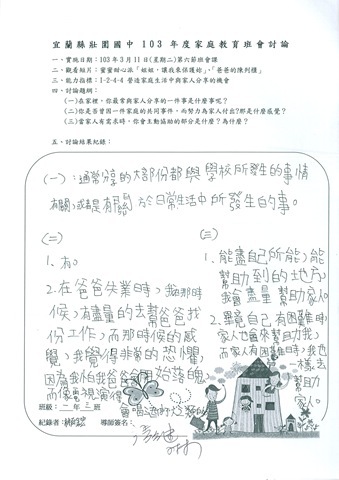 宜蘭縣壯圍國中 103 年度家庭教育班會討論
一、實施日期：103年3月11日(星期二)第六節班會課
二、觀看短片：蜜蜜甜心派「姐姐，讓我來保護妳」、「爸爸的陳列櫃」
三、能力指標：2-4-4 營造家庭生活中與家人分享的機會
四、討論題綱：
(一)在家裡，你最常與家人分享的一件事是什麼事呢？
(二)你是否曾因一件家庭的共同事件，而努力為家人付出?那是什麼感覺？
(三)當家人有需求時，你會主動協助的部分是什麼？為什麼？
五、討論結果紀錄：
(一)：通常分享的大部份都與學校所發生的事情
有關，或者是有關於日常生活中所發生的事。
(二)
1、有。
2、在爸爸失業時，我在那時
候，有盡量的去幫爸爸找
份工作，而那時候的感
覺，我覺得非常的恐懼，
因為我怕我爸爸會開始落魄，
而像電視演得
會喝酒的父類的
(三)
1、能盡自己所能，能
幫助到的地方，
我會盡量幫助家人。
2、畢竟自己有困難時，
家人也會來幫助我，
而家人有困難時，我也
一樣去
幫助
家人。
班級：二年三班
紀錄者：
導師簽名：